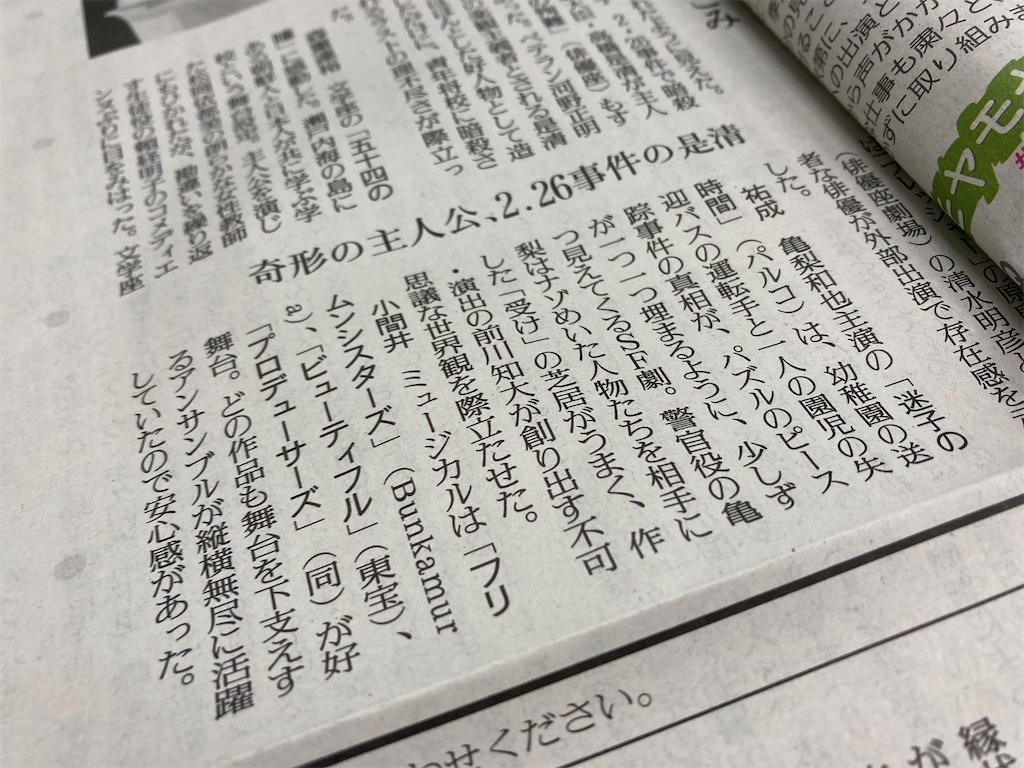 の出演と
ら声がかか
仕事も粛々と
ずに取り組みま
ヤモ
奇形の主人公、2.26事件の是清
2・26事件で暗殺
された高橋是清が主人
(俳優座)もす
った。ベテラン河野正明
義者とされる是清
人として好人物として造
青年将校に暗殺さ
れるラストの理不尽さが際立っ
た。
文学座の「五十四の
瞳」に感動した。瀬戸内海の島に
ある朝鮮人と日本人が共に学ぶ学
校という舞台設定。主人公を演じ
におりかれたが、勘違いを繰り返
す生徒役の頼経明子のコメディエ
ンヌぶりに目をみはった。文学座
(俳優座劇場)の清水明彦と
者な俳優が外部出演で存在感を
した。
祐成 亀梨和也主演の「迷子の
時間」(パルコ)は、幼稚園の送
迎バスの運転手と一人の園児の失
踪事件の真相が、パズルのピース
が一つ一つ埋まるように、少しず
つ見えてくるSF劇。警官役の亀
梨はナゾめいた人物たちを相手に
した「受け」の芝居がうまく、作
・演出の前川知大が創り出す不可
思議な世界観を際立たせた。
小間井 ミュージカルは「フリ
ムンシスターズ」(Bunkamur
a)、「ビューティフル」(東宝)、
「プロデューサーズ」(同)が好
舞台。どの作品も舞台を下支えす
るアンサンブルが縦横無尽に活躍
していたので安心感があった。
わせください。
縁
が